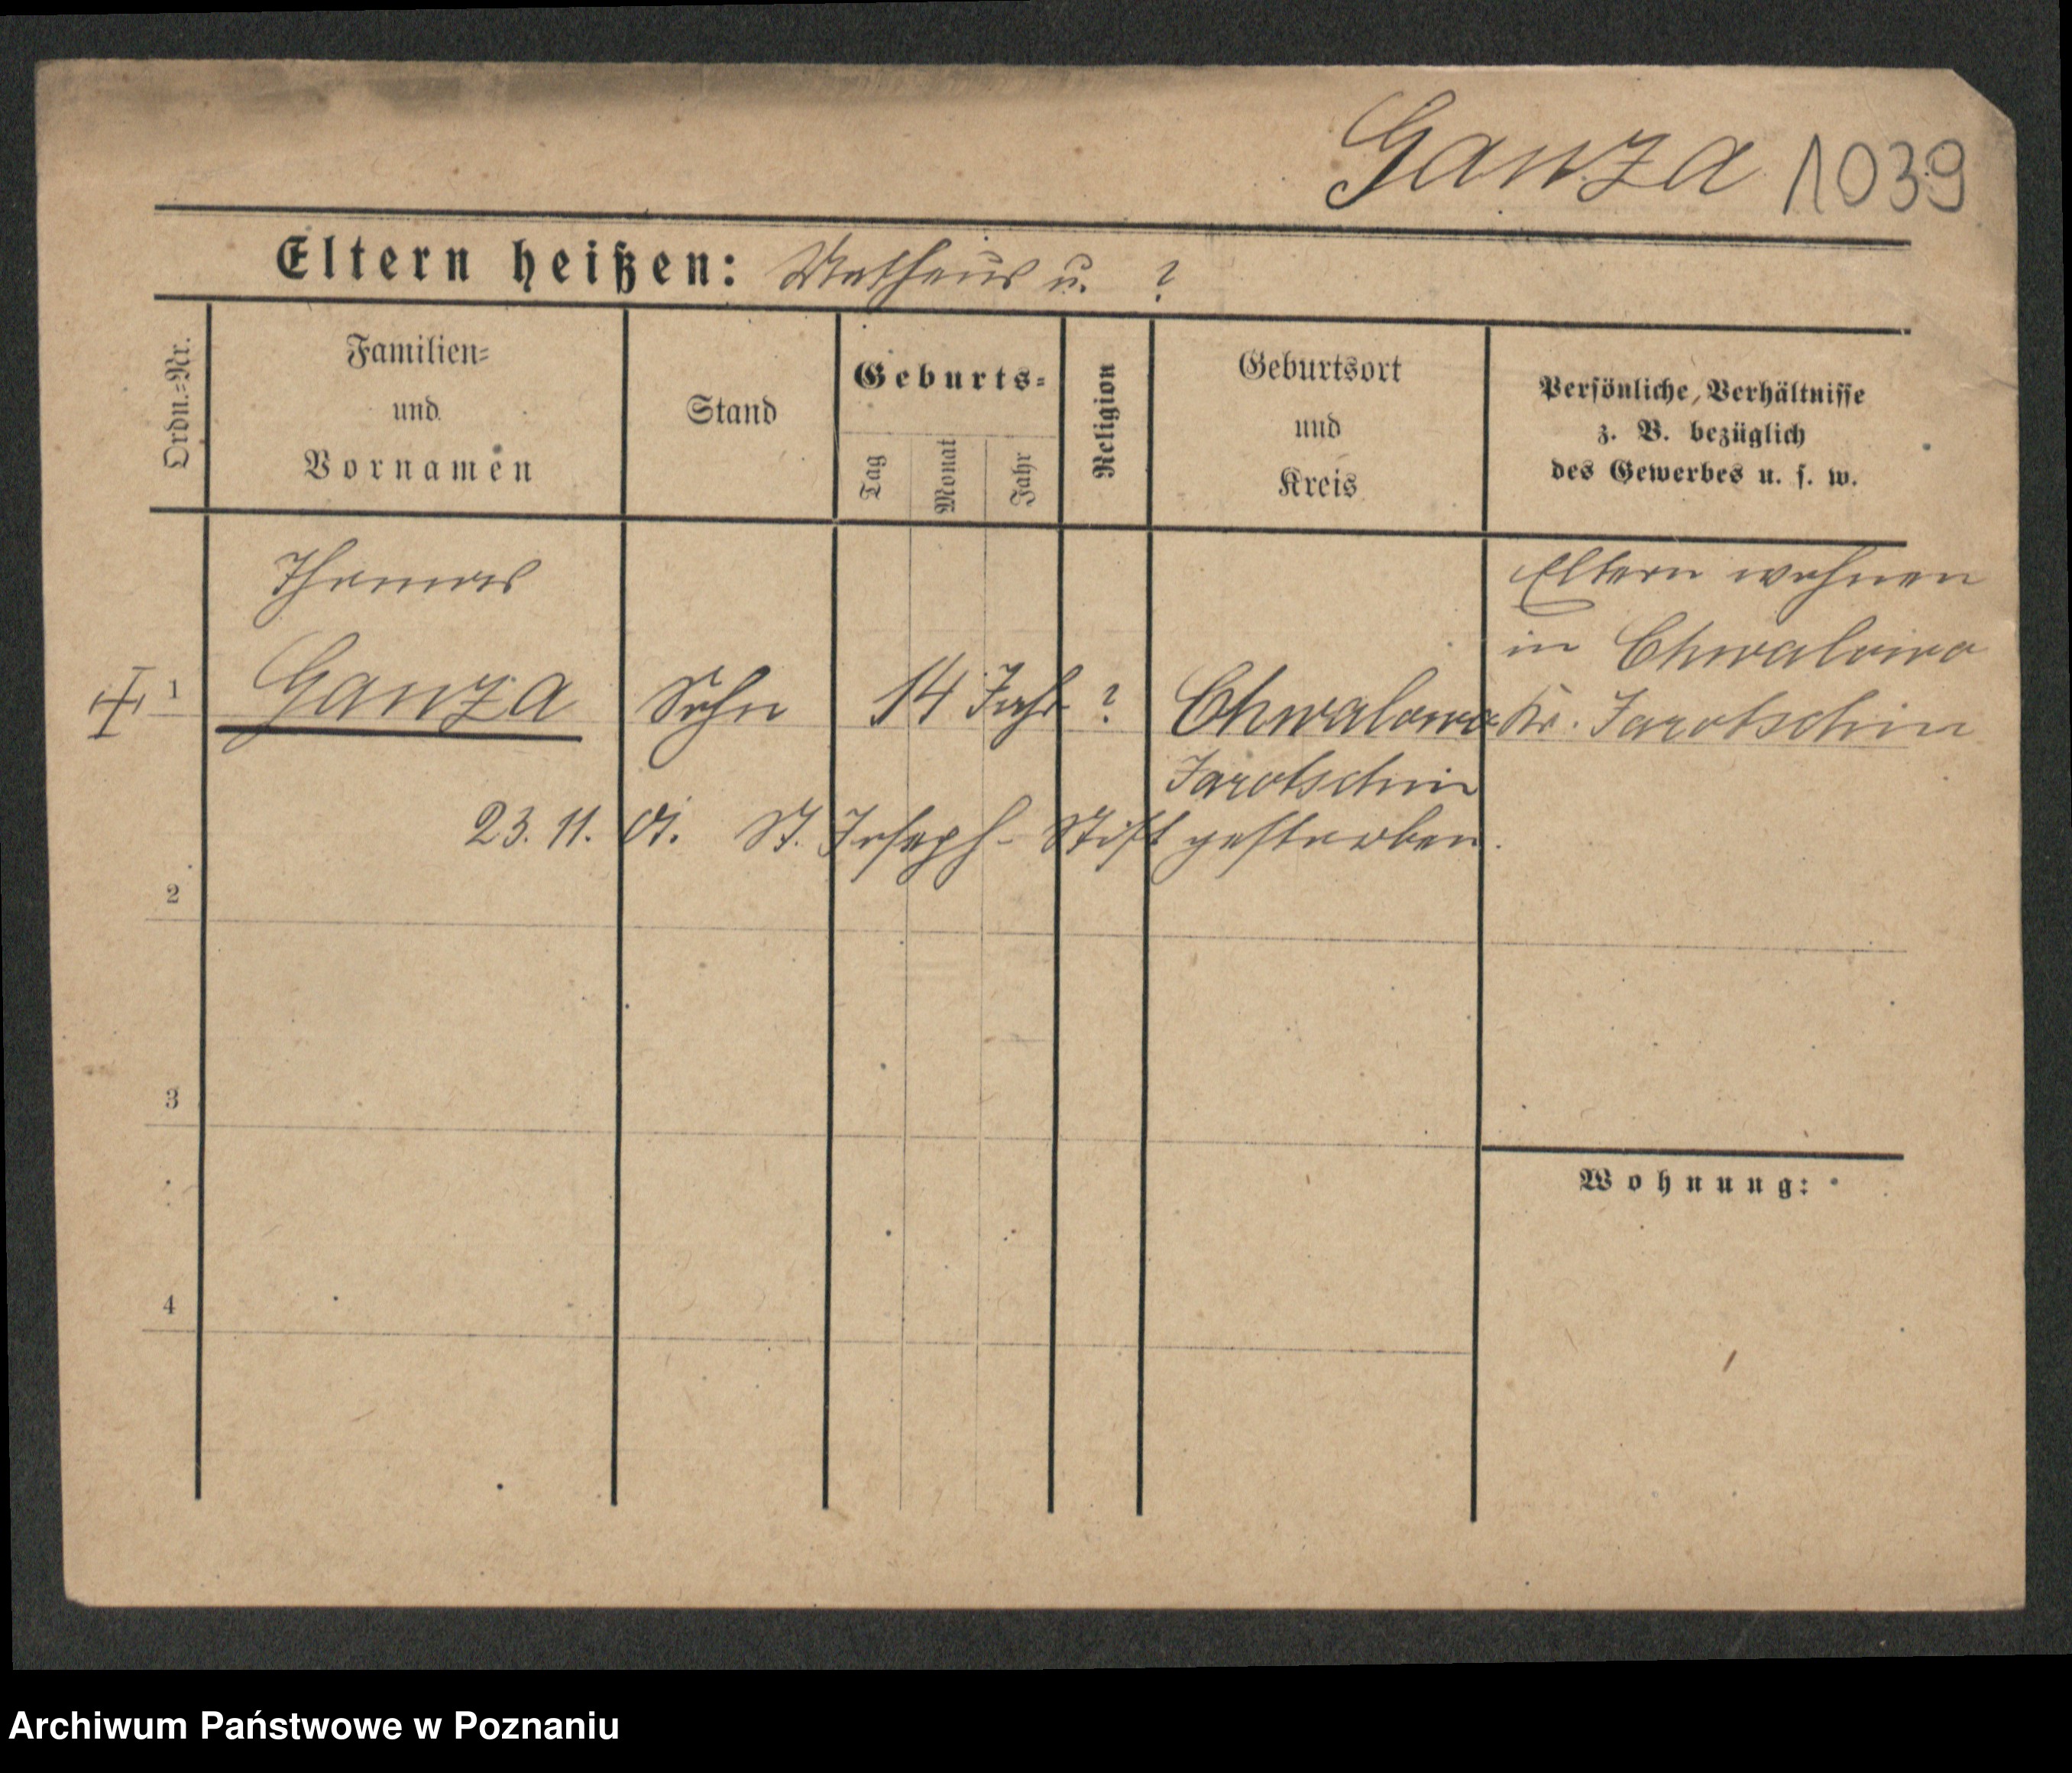 Ganza 1039
Eltern heißen: Matheus u. ?
Ordn.=Nr.
Familien=
und
Vornamen
Stand
Geburts=
Tag
Monat
Jahr
Religion
Geburtsort
und
Kreis
Persönliche Verhältnisse
z. B. bezüglich
des Gewerbes u. s. w.
Thomas
Eltern wohnen
in Chwalowo
1 Ganza Sohn 14 Jahr ? Chwalowo Kr. Jarotschin
Jarotschin
23. 11. 01. St. Joseph-Stift gestorben.
2
3
Wohnung:
4
Archiwum Państwowe w Poznaniu